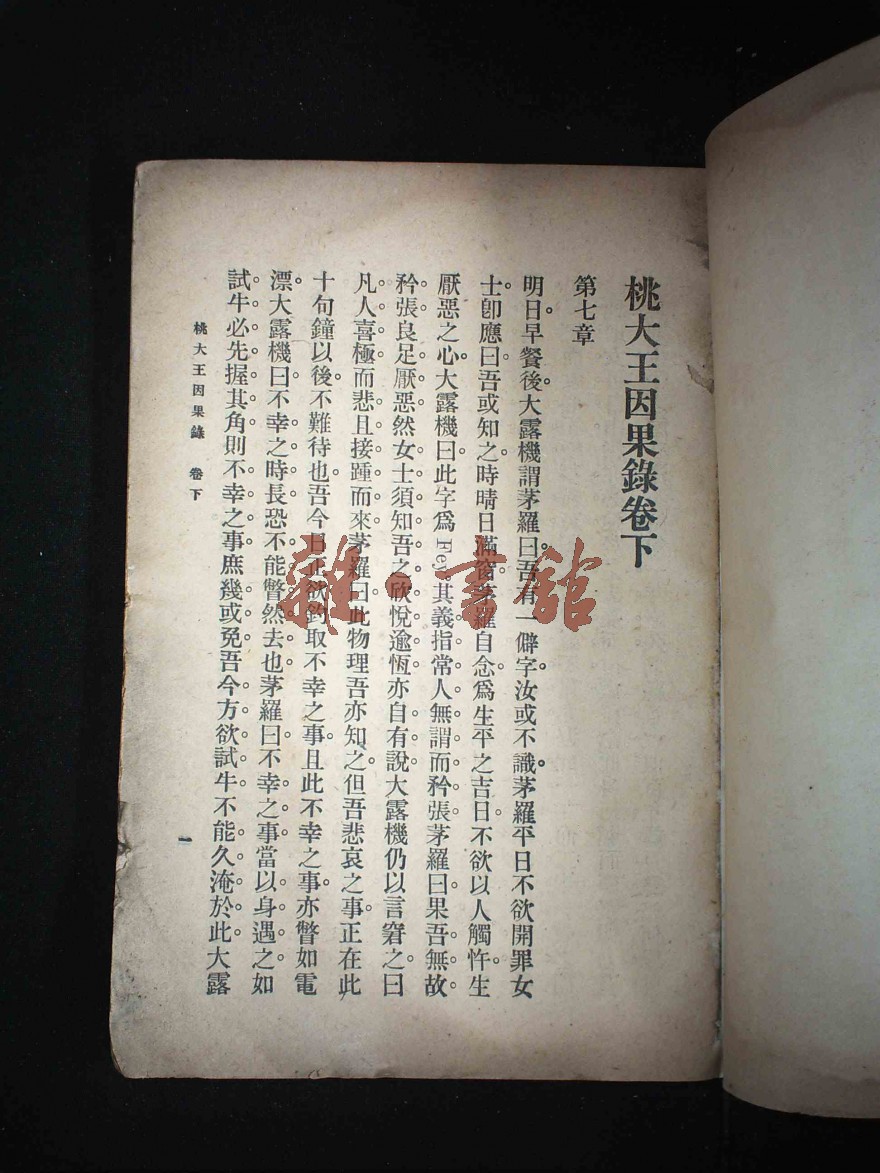 桃大王因果錄卷下
第七章
明日早餐後。大露機謂茅羅曰。吾有一僻字。汝或不識。茅羅平日不欲開罪女
士。卽應曰。吾或知之。時晴日滿窗。茅羅自念爲生平之吉日。不欲以人觸忤生
厭惡之心。大露機曰。此字爲Fey。其義指常人無謂而矜張。茅羅曰。果吾無故
矜張。良足厭惡。然女士須知吾之欣悅逾恆。亦自有說。大露機仍以言窘之曰。
凡人喜極而悲且接踵而來。茅羅曰。此物理吾亦知之。但吾悲哀之事。正在此
十句鐘以後。不難待也。吾今日正欲鈎取不幸之事。且此不幸之事。亦瞥如電
漂。大露機曰。不幸之時長。恐不能瞥然去也。茅羅曰。不幸之事。當以身遇之。如
試牛必先握其角。則不幸之事。庶幾或免。吾今方欲試牛。不能久淹於此。大露
桃大王因果錄 卷下
一
雜·書館